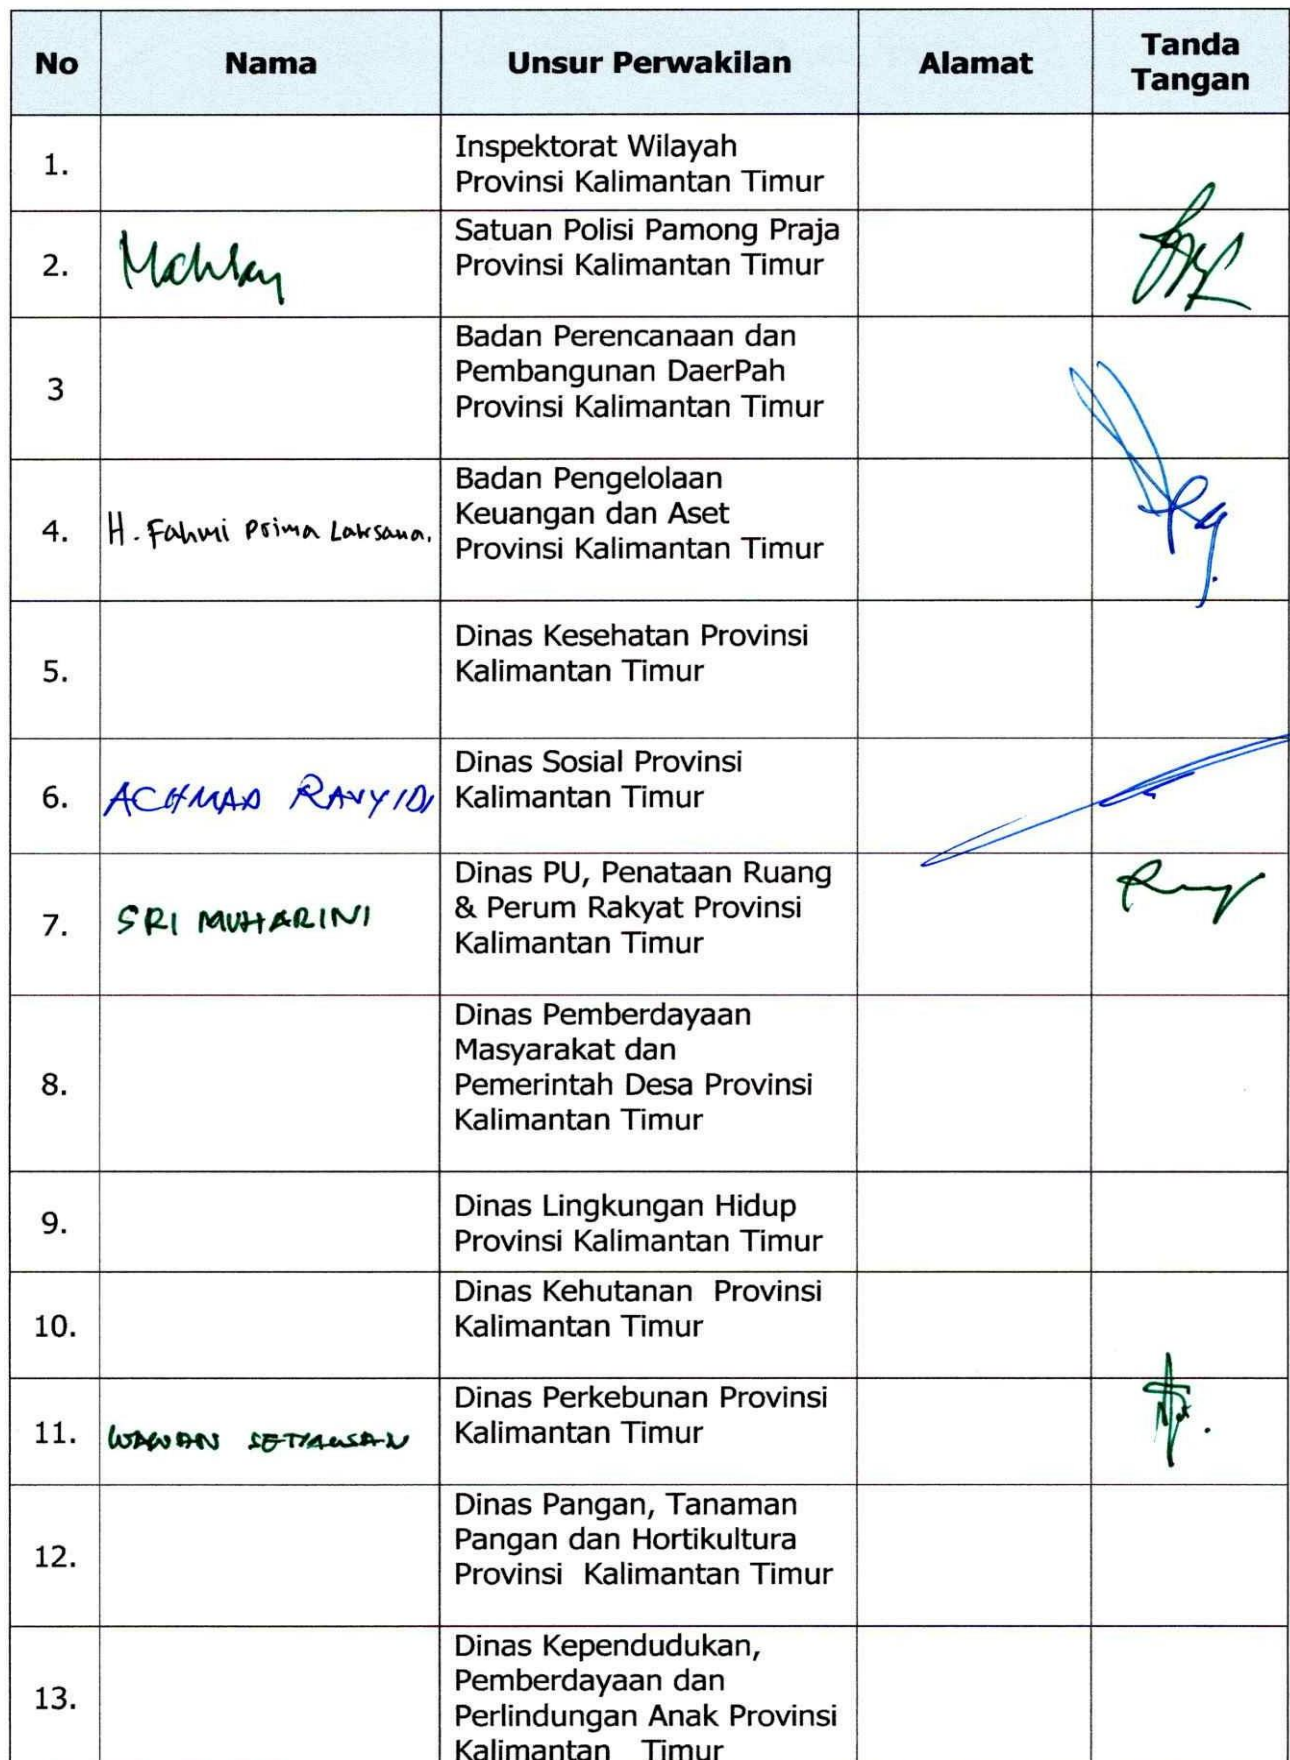 No Nama Unsur Perwakilan Alamat Tanda
Tangan
1.
Inspektorat Wilayah
Provinsi Kalimantan Timur
2.
Satuan Polisi Pamong Praja
Provinsi Kalimantan Timur
3
Badan Perencanaan dan
Pembangunan DaerPah
Provinsi Kalimantan Timur
4. H. Fahmi Prima Laksana.
Badan Pengelolaan
Keuangan dan Aset
Provinsi Kalimantan Timur
5.
Dinas Kesehatan Provinsi
Kalimantan Timur
6. ACHMAD
Dinas Sosial Provinsi
Kalimantan Timur
7. SRI MUHARINI
Dinas PU, Penataan Ruang
& Perum Rakyat Provinsi
Kalimantan Timur
8.
Dinas Pemberdayaan
Masyarakat dan
Pemerintah Desa Provinsi
Kalimantan Timur
9.
Dinas Lingkungan Hidup
Provinsi Kalimantan Timur
10.
Dinas Kehutanan Provinsi
Kalimantan Timur
11. WAWAN SETIAWAN
Dinas Perkebunan Provinsi
Kalimantan Timur
12.
Dinas Pangan, Tanaman
Pangan dan Hortikultura
Provinsi Kalimantan Timur
13.
Dinas Kependudukan,
Pemberdayaan dan
Perlindungan Anak Provinsi
Kalimantan Timur